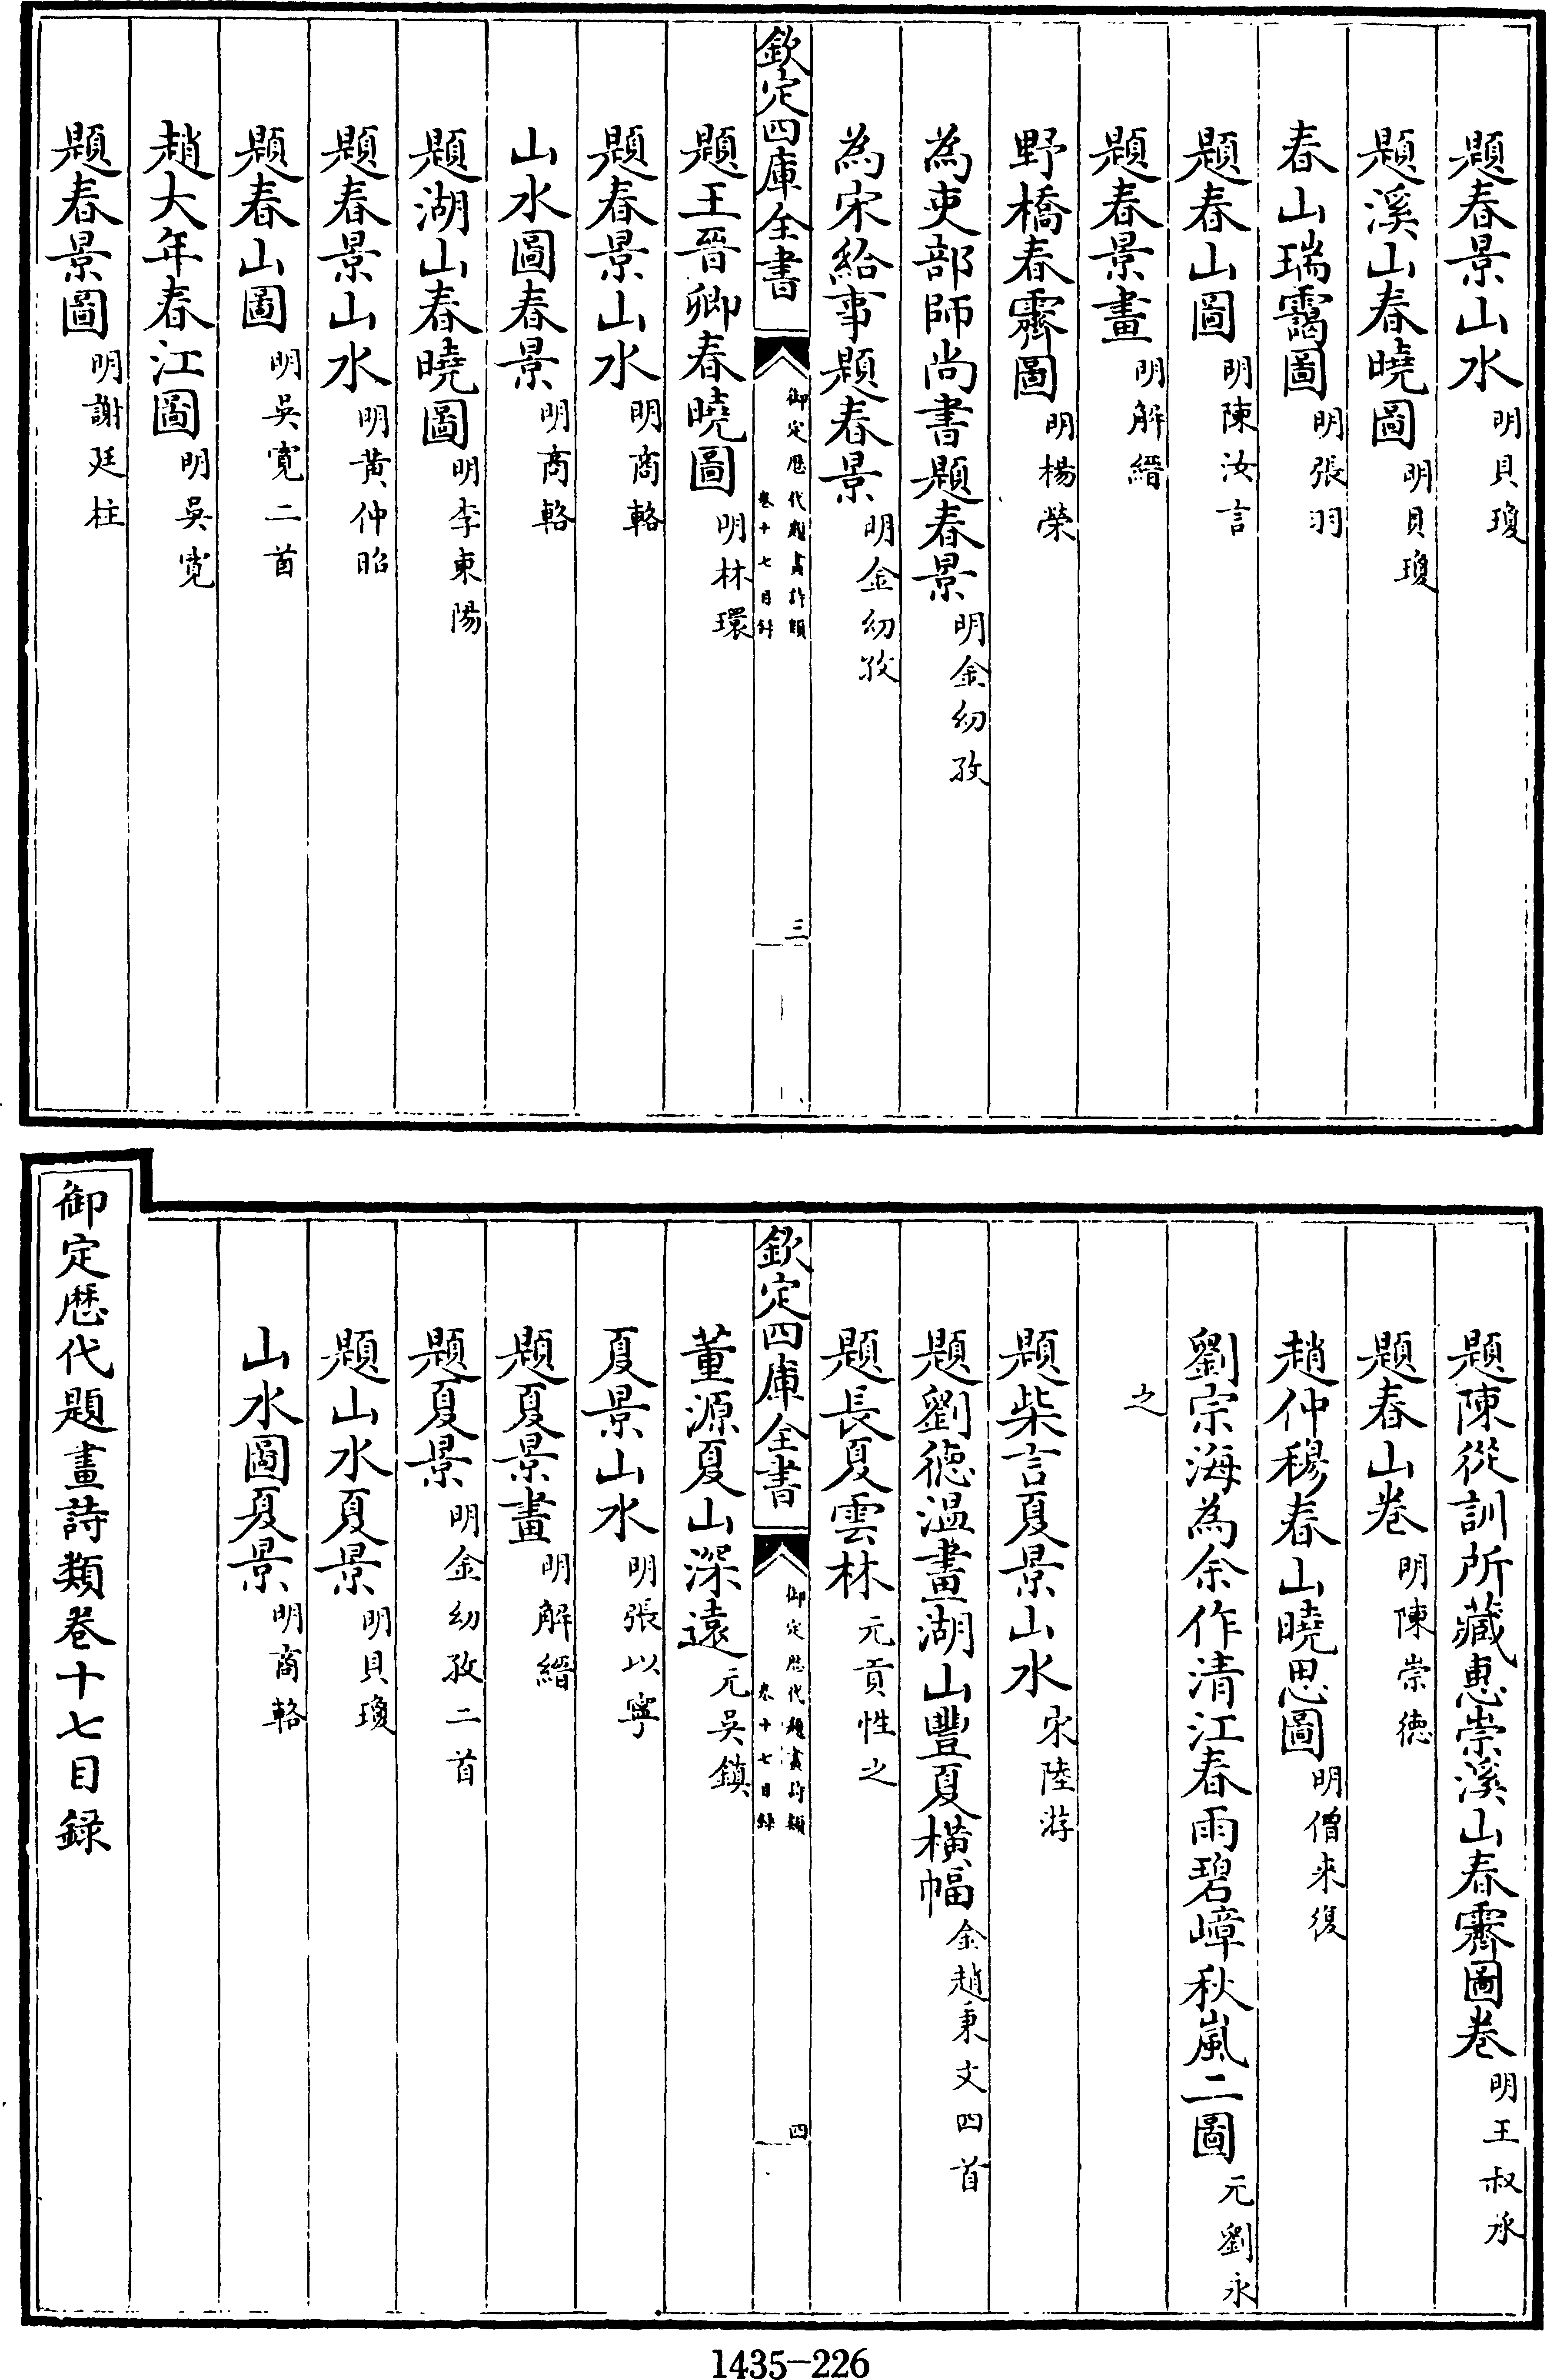 題春景山水明貝瓊
題溪山春曉圖明貝瓊
春山瑞靄圖明張羽
題春山圖明陳汝言
題春景畫明解縉
野橋春霽圖明楊榮
為吏部師尚書題春景明金幼孜
為宋給事題春景明金幼孜
欽定四庫全書
御定歷代題畫詩類
卷十七目錄
三
題王晉卿春曉圖明林環
題春景山水明商輅
山水圖春景明商輅
題湖山春曉圖明李東陽
題春景山水明黃仲昭
題春山圖明吳寬二首
趙大年春江圖明吳寬
題春景圖明謝廷柱
題陳從訓所藏惠崇溪山春霽圖卷明王叔承
題春山卷明陳崇德
趙仲穆春山曉思圖明僧来復
劉宗海為余作清江春雨碧嶂秋嵐二圖元劉永
之
題柴言夏景山水宋陸游
題劉徳温畫湖山豐夏橫幅金趙秉文四首
題長夏雲林元貢性之
欽定四庫全書
御定歷代題畫詩類
卷十七目錄
四
董源夏山深遠元吳鎮
夏景山水明張以寧
題夏景畫明解縉
題夏景明金幼孜二首
題山水夏景明貝瓊
山水圖夏景明商輅
御定歷代題畫詩類卷十七目錄
1435-226